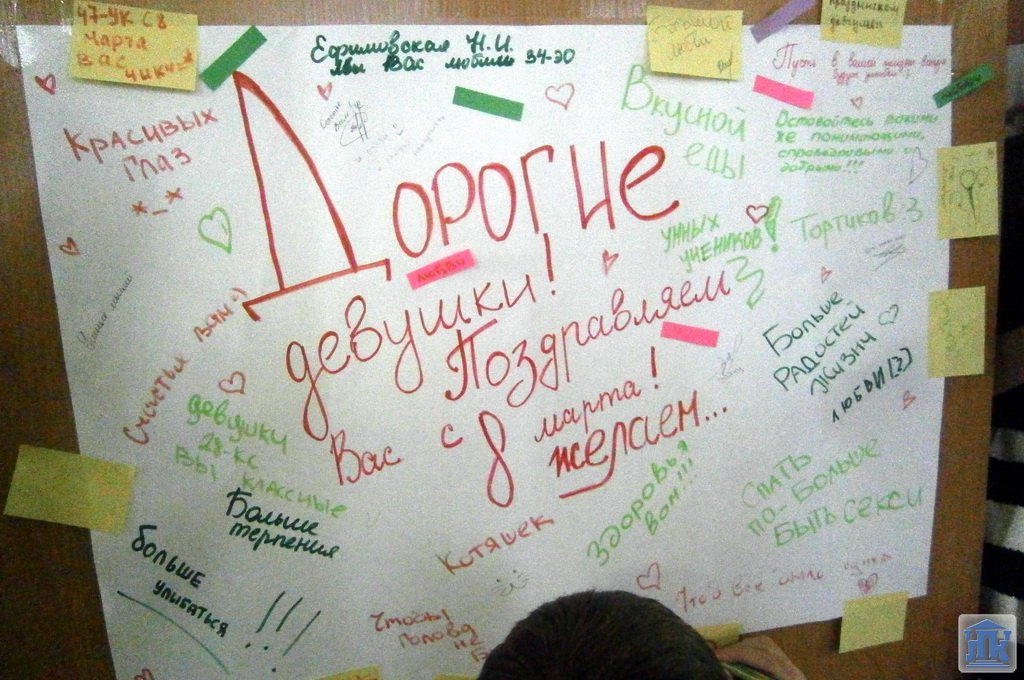 47-УК С 8
Марта
Вас
Ефимовская Н.И.
Мы Вас любим 34-ЭО
Большой
любви
Пусть в вашей жизни всегда
Вкусной
еды
Оставайтесь такими
же понимающими,
справедливыми и
добрыми!!!
Красивых
глаз
*_*
Дорогие
девушки!
Поздравляем
Вас с 8 марта!
желаем...
любви
умных
учеников!
Тортиков 3
Больше
радостей
жизни
любви (2)
Счастья Вам =)
девушки
28-КС
Вы классные
Больше
терпения
больше
улыбаться !!!
Котяшек
Здоровья
Вам!!!
Спать
по-больше
Быть секси
Чтобы
голова
не
Чтоб все были